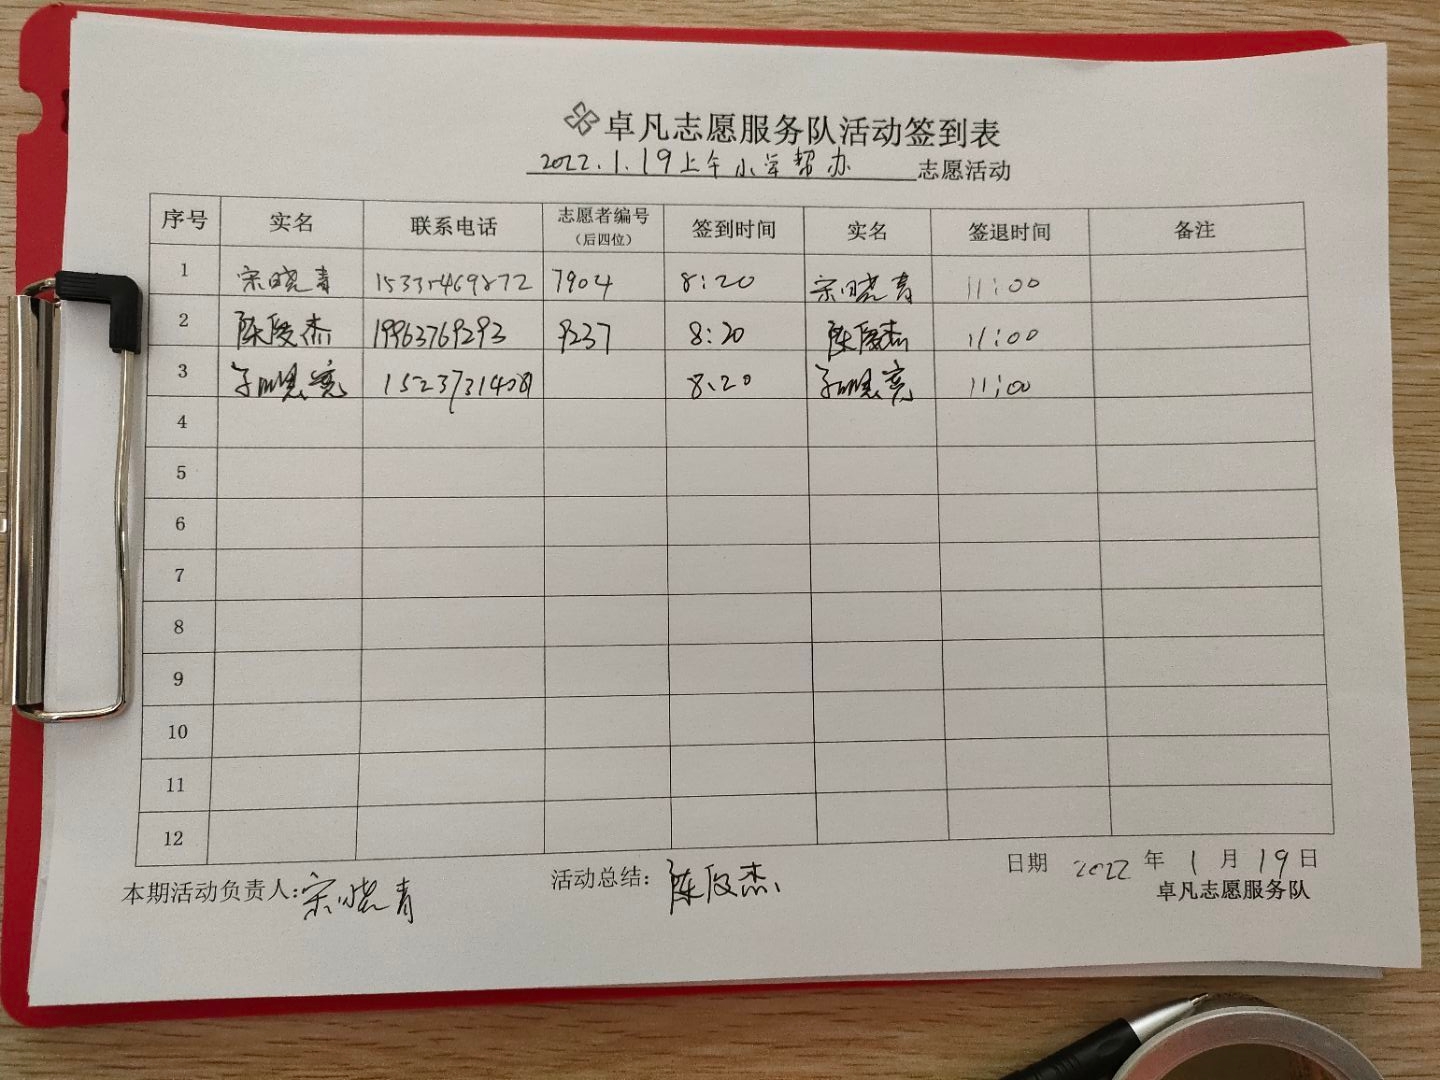 卓凡志愿服务队活动签到表
2022.1.19上午小羊帮办 志愿活动
序号 实名 联系电话 志愿者编号（后四位） 签到时间 实名 签退时间 备注
1 宋晓青 15335469872 7904 8:20 宋晓青 11:00
2 陈俊杰 19963769293 9237 8:20 陈俊杰 11:00
3 15237314081 8:20 11:00
4
5
6
7
8
9
10
11
12
本期活动负责人:宋晓青 活动总结:陈俊杰 日期 2022 年 1 月 19 日
卓凡志愿服务队